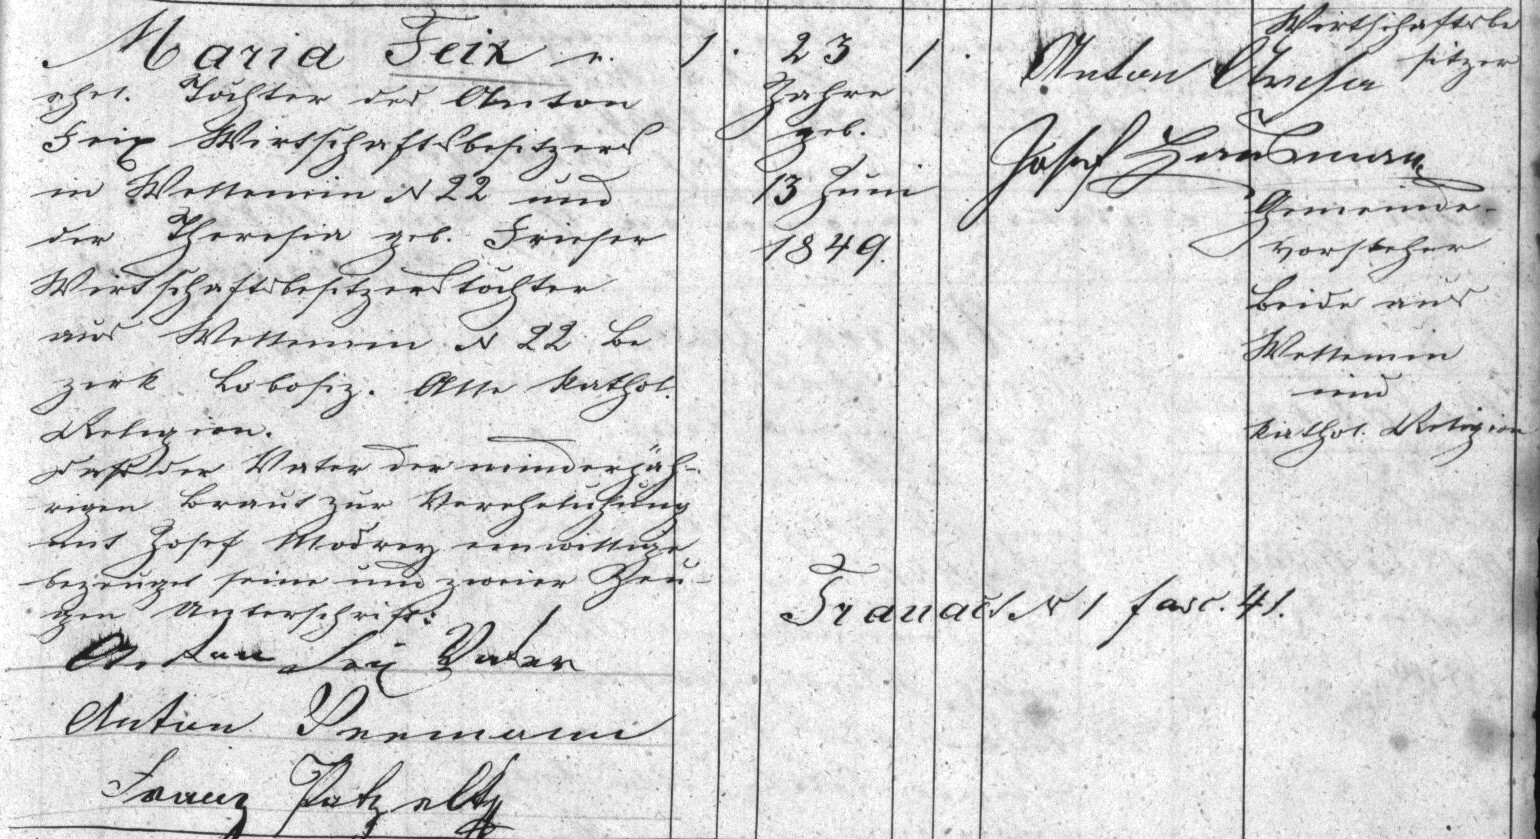 Maria Feix e.
ehel. Tochter des Anton
Feix Wirtschaftsbesitzers
in Wettemin N 22 und
der Theresia geb. Frieser
Wirtschaftsbesitzerstochter
aus Wettemin N 22 Be
zirk Lobositz. Alle kathol.
Religion.
Daß der Vater der minderjäh-
rigen Braut zur Verehelichung
mit Josef Modrey einwillige
bezeuget seine und zweier Zeu-
gen Unterschrift:
Anton Feix Vater
Anton
Franz Patzelt
1.
23
Jahre
geb.
13 Juni
1849.
1.
Trauact N 1 fasc. 41.
Anton
Wirtschaftsbe
sitzer
Josef Hausmann
Gemeinde-
vorsteher
beide aus
Wettemin
und
kathol. Religion